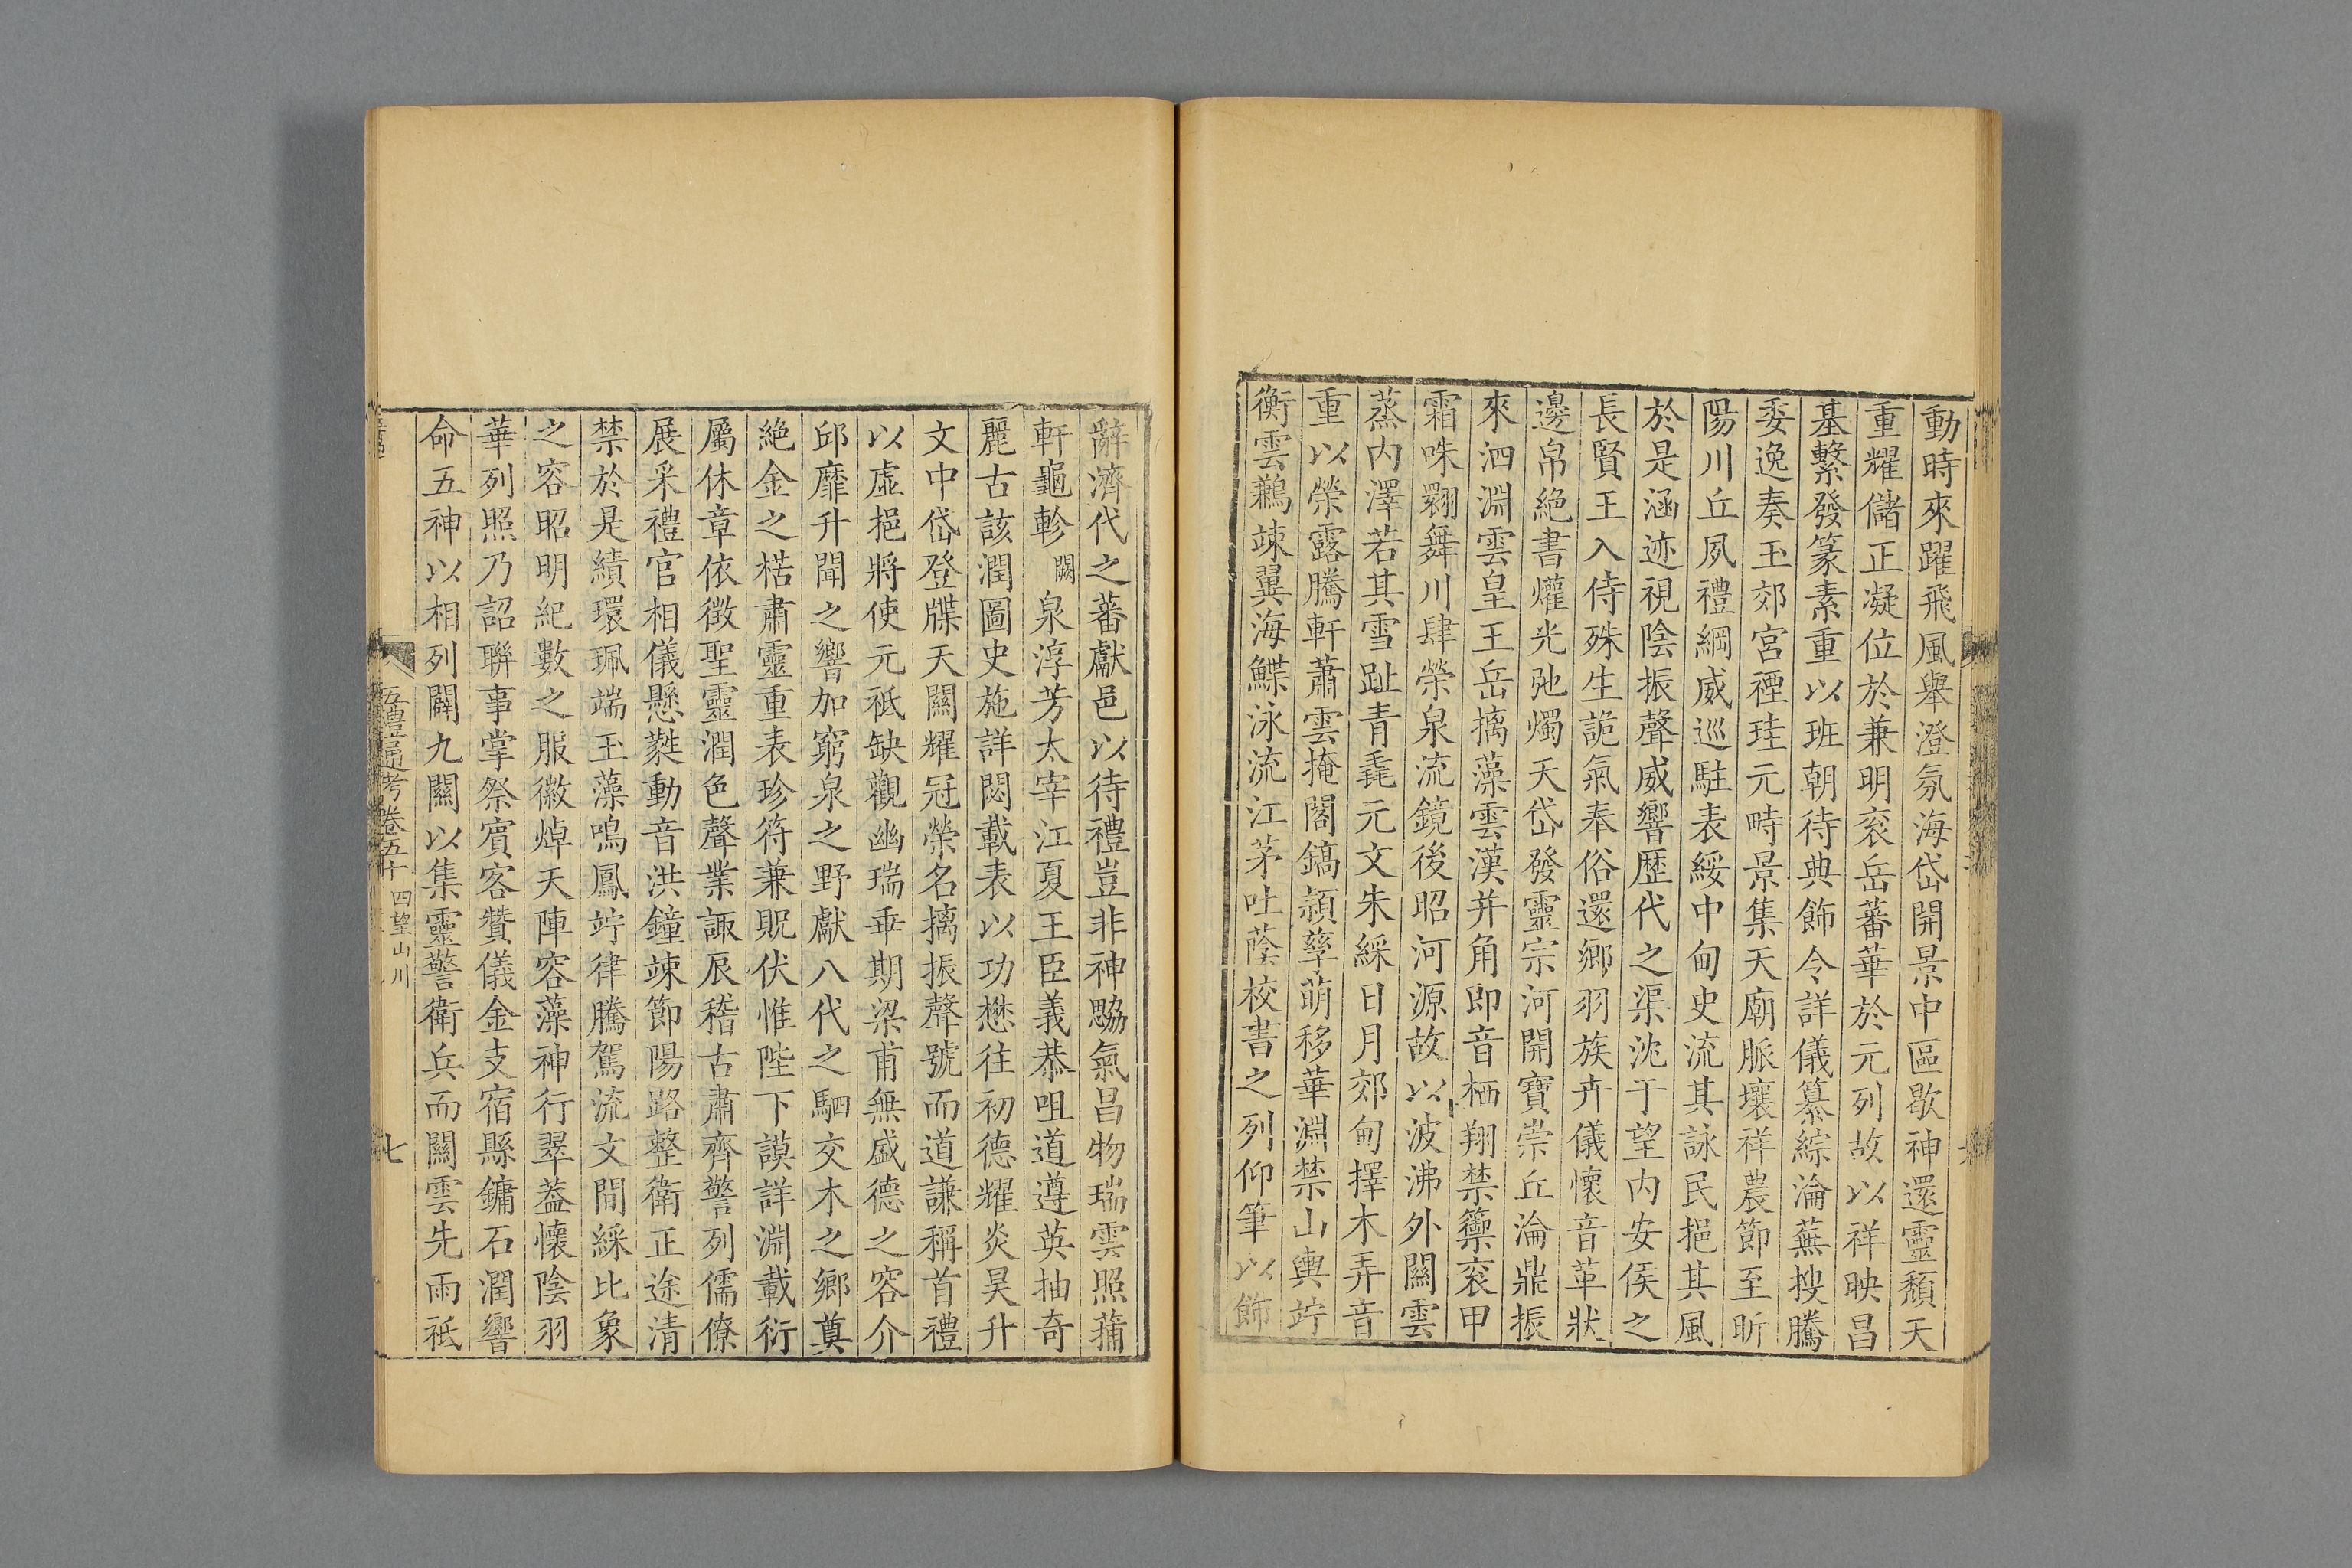 動時來躍飛風舉澄氛海岱開景中區歇神還靈頹天
重耀儲正凝位於兼明衮岳蕃華於元列故以祥映昌
基繫發篆素重以班朝待典飾令詳儀纂綜淪蕪搜騰
委逸奏玉郊宮禋珪元畤景集天廟脈壤祥農節至昕
陽川丘夙禮綱威巡駐表綏中甸史流其詠民挹其風
於是涵迹視陰振聲威響歷代之渠沈于望內安侯之
長賢王入侍殊生詭氣奉俗還鄉羽族卉儀懷音革狀
邊帛絕書爟光弛燭天岱發靈宗河開寶崇丘淪鼎振
來泗淵雲皇王岳摛藻雲漢并角即音栖翔禁籞衮甲
霜咮翾舞川肆榮泉流鏡後昭河源故以波沸外關雲
蒸內澤若其雪趾青毳元文朱綵日月郊甸擇木弄音
重以榮露騰軒蕭雲掩閣鎬頴孳萌移華淵禁山輿竚
衡雲鶼竦翼海鰈泳流江茅吐蔭校書之列仰筆以飾
辭濟代之蕃獻邑以待禮豈非神勰氣昌物瑞雲照蒱
軒龜軫闕泉淳芳太宰江夏王臣義恭咀道遵英抽奇
麗古該潤圖史施詳閟載表以功懋往初德耀炎昊升
文中岱登牒天關耀冠榮名摛振聲號而道謙稱首禮
以虛挹將使元祗缺觀幽瑞乖期梁甫無盛德之容介
邱靡升聞之響加窮泉之野獻八代之駟交木之鄉奠
絕金之楛肅靈重表珍符兼貺伏惟陛下謨詳淵載衍
屬休章依徵聖靈潤色聲業諏辰稽古肅齊警列儒僚
展采禮官相儀懸蕤動音洪鐘竦節陽路整衛正途清
禁於是績環珮端玉藻鳴鳳竚律騰駕流文間綵比象
之容昭明紀數之服徽焯天陣容藻神行翠葢懷陰羽
華列照乃詔聯事掌祭賓客贊儀金支宿縣鏞石潤響
命五神以相列闢九關以集靈警衛兵而關雲先雨祗
五豊通考卷五十 四望山川
七